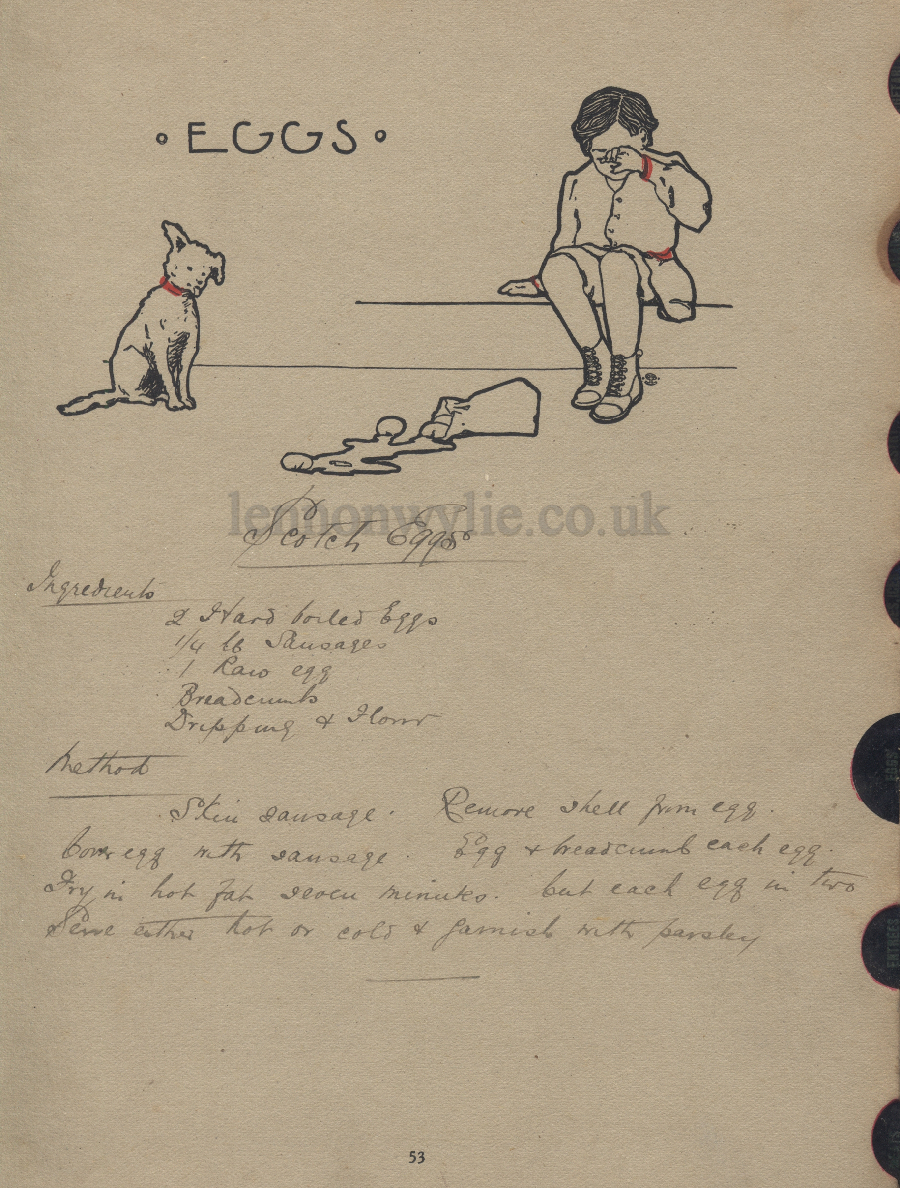 • EGGS •
lennonwylie.co.uk
Scotch Eggs
Ingredients
2 Hard boiled Eggs
1/4 lb Sausages
1 Raw egg
Breadcrumbs
Dripping & Flour
Method
Skin sausage. Remove shell from egg.
Cover egg with sausage. Egg & breadcrumb each egg.
Fry in hot fat seven minutes. Cut each egg in two
Serve either hot or cold & garnish with parsley
EGGS
ENTREES
53